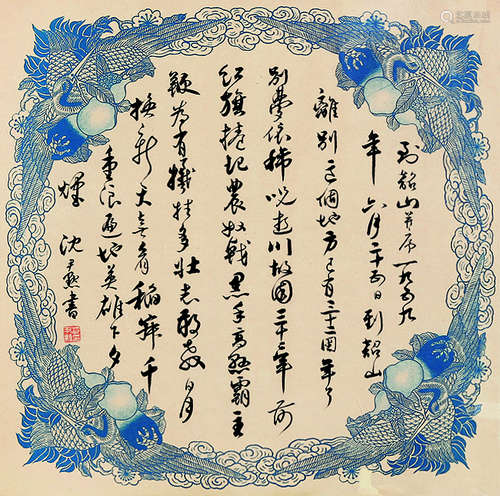 到韶山并序一九五九
年六月二十五日到韶山
離別這個地方已有三十二周年了
别夢依稀咒逝川故園三十二年前
红旗捲起農奴戟黑手高懸霸主
鞭為有犧牲多壯志敢教日月
換新天喜看稻菽千
重浪遍地英雄下夕
煙 沈尹默書